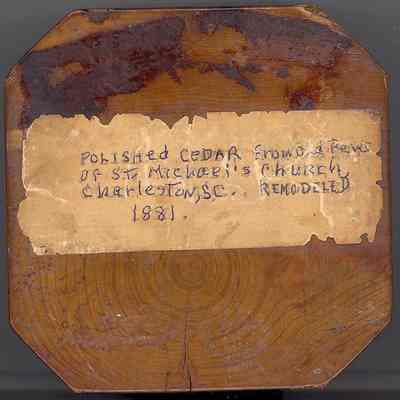 POLISHED CEDAR from old Pews
OF ST. Michael's CHURCH,
Charleston, SC. REMODELED
1881.